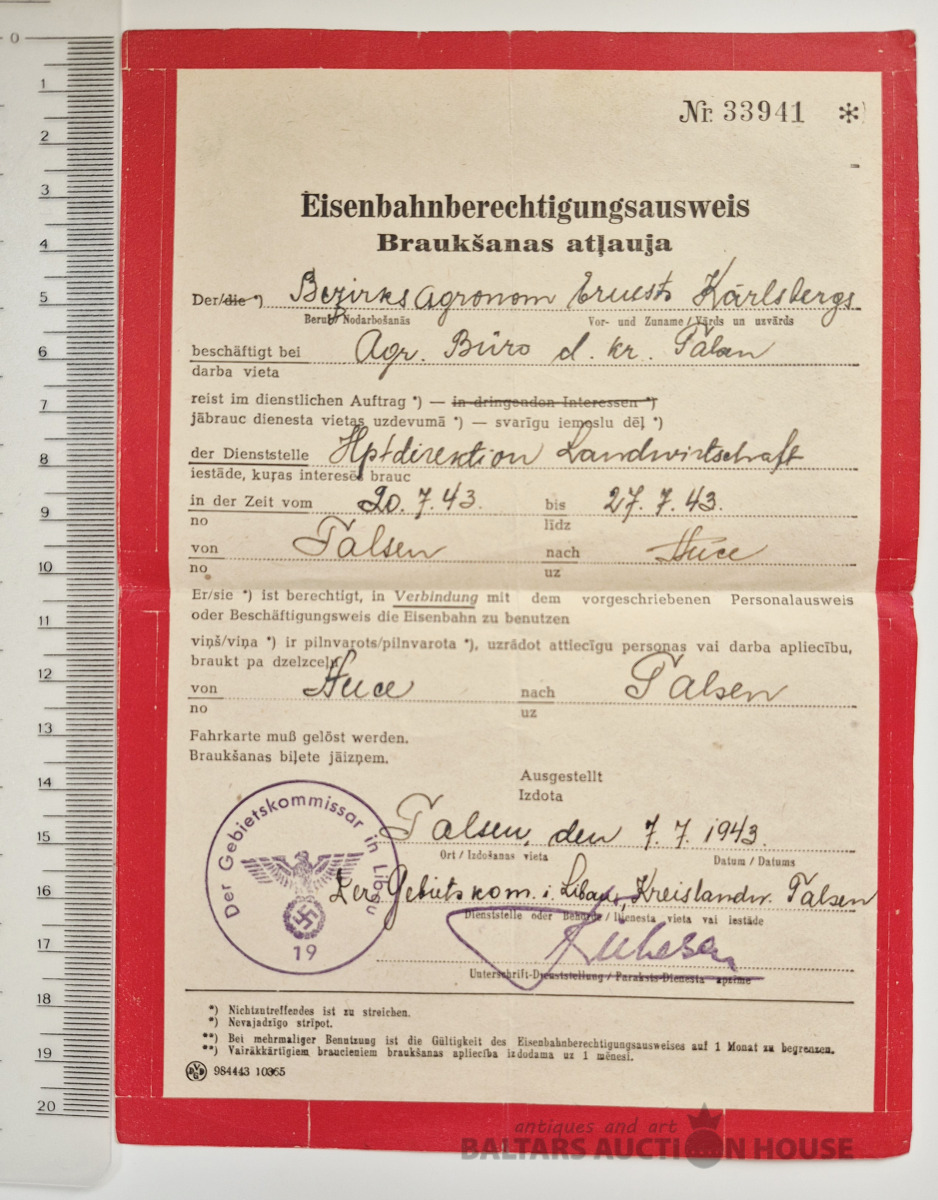 0
1
2
3
4
5
6
7
8
9
10
11
12
13
14
15
16
17
18
19
20
Nr. 33941 *
Eisenbahnberechtigungsausweis
Braukšanas atļauja
Der/die *) Bezirksagronom Ernests Kārlsbergs
Beruf/Nodarbošanās Vor- und Zuname / Vārds un uzvārds
beschäftigt bei Agr. Büro d. kr. Talsen
darba vieta
reist im dienstlichen Auftrag *) — in dringenden Interessen *)
jābrauc dienesta vietas uzdevumā *) — svarīgu iemeslu dēļ *)
der Dienststelle Hptdirektion Landwirtschaft
iestāde, kuŗas interesēs brauc
in der Zeit vom 20. 7. 43. bis 27. 7. 43.
no līdz
von Talsen nach Auce
no uz
Er/sie *) ist berechtigt, in Verbindung mit dem vorgeschriebenen Personalausweis
oder Beschäftigungsweis die Eisenbahn zu benutzen
viņš/viņa *) ir pilnvarots/pilnvarota *), uzrādot attiecīgu personas vai darba apliecību,
braukt pa dzelzceļu
von Auce nach Talsen
no uz
Fahrkarte muß gelöst werden.
Braukšanas biļete jāizņem.
Ausgestellt
Izdota
Talsen, den 7. 7. 1943.
Ort / Izdošanas vieta Datum / Datums
Der Gebietskom. i. Libau, Kreislandw. Talsen
Dienststelle oder Behörde / Dienesta vieta vai iestāde
Unterschrift-Dienststellung / Paraksts-Dienesta apzīme
Der Gebietskommissar in Libau
19
*) Nichtzutreffendes ist zu streichen.
*) Nevajadzīgo strīpot.
**) Bei mehrmaliger Benutzung ist die Gültigkeit des Eisenbahnberechtigungsausweises auf 1 Monat zu begrenzen.
**) Vairākkārtīgiem braucieniem braukšanas apliecība izdodama uz 1 mēnesi.
984443 10365
antiques and art
BALTARS AUCTION HOUSE